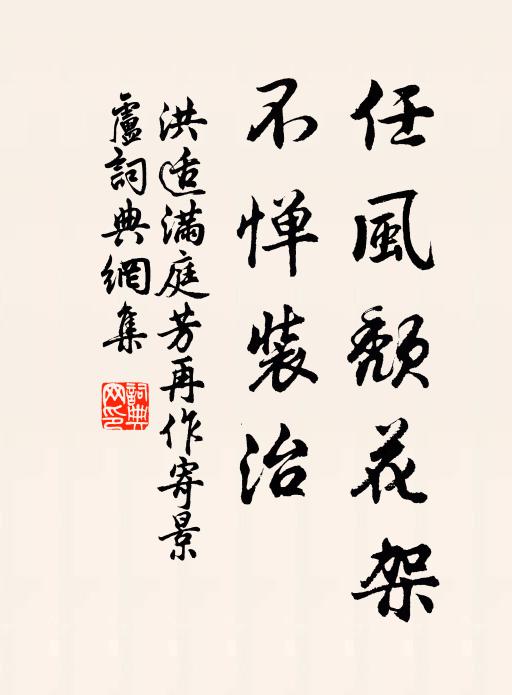 任風頹花架
不惮裝治
洪适滿庭芳再作寄景
盧詞典網集
詞典
网印